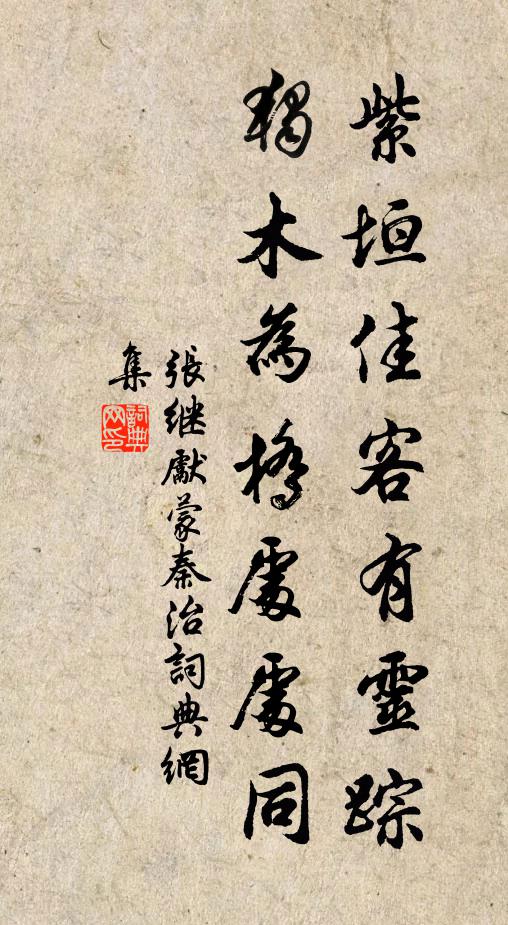 紫垣佳客有靈踪
獨木為橋處處同
張继獻蒙秦治詞典網
集
詞典
网印